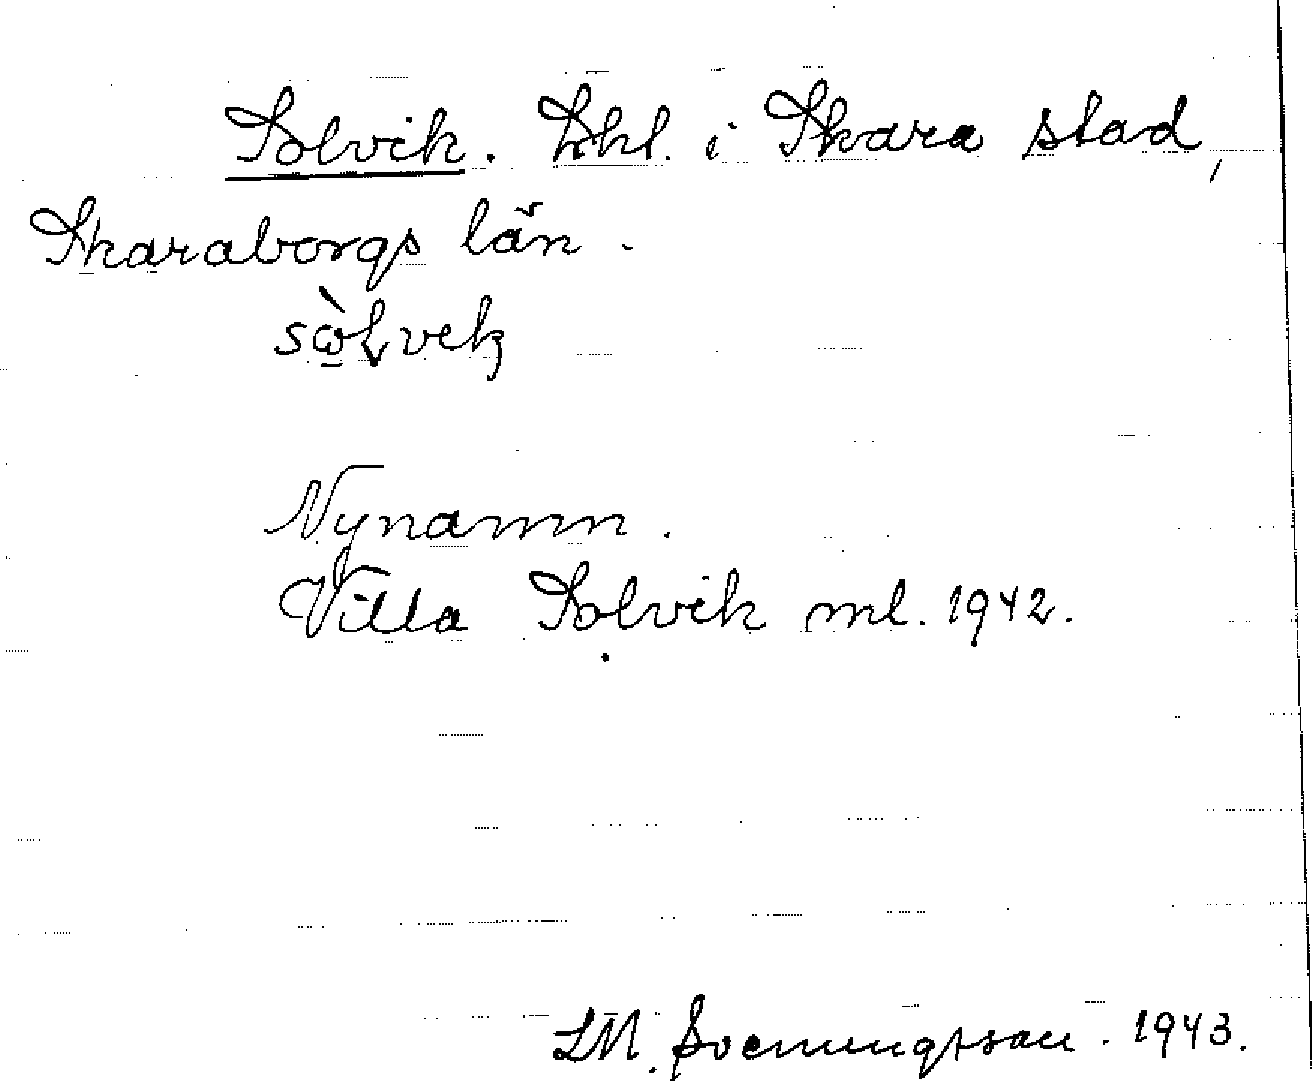 Solvik. Lkl. i Skara stad,
Skaraborgs län.
Nynamn.
Villa Solvik ml. 1942.
LM. Svenungsson. 1943.